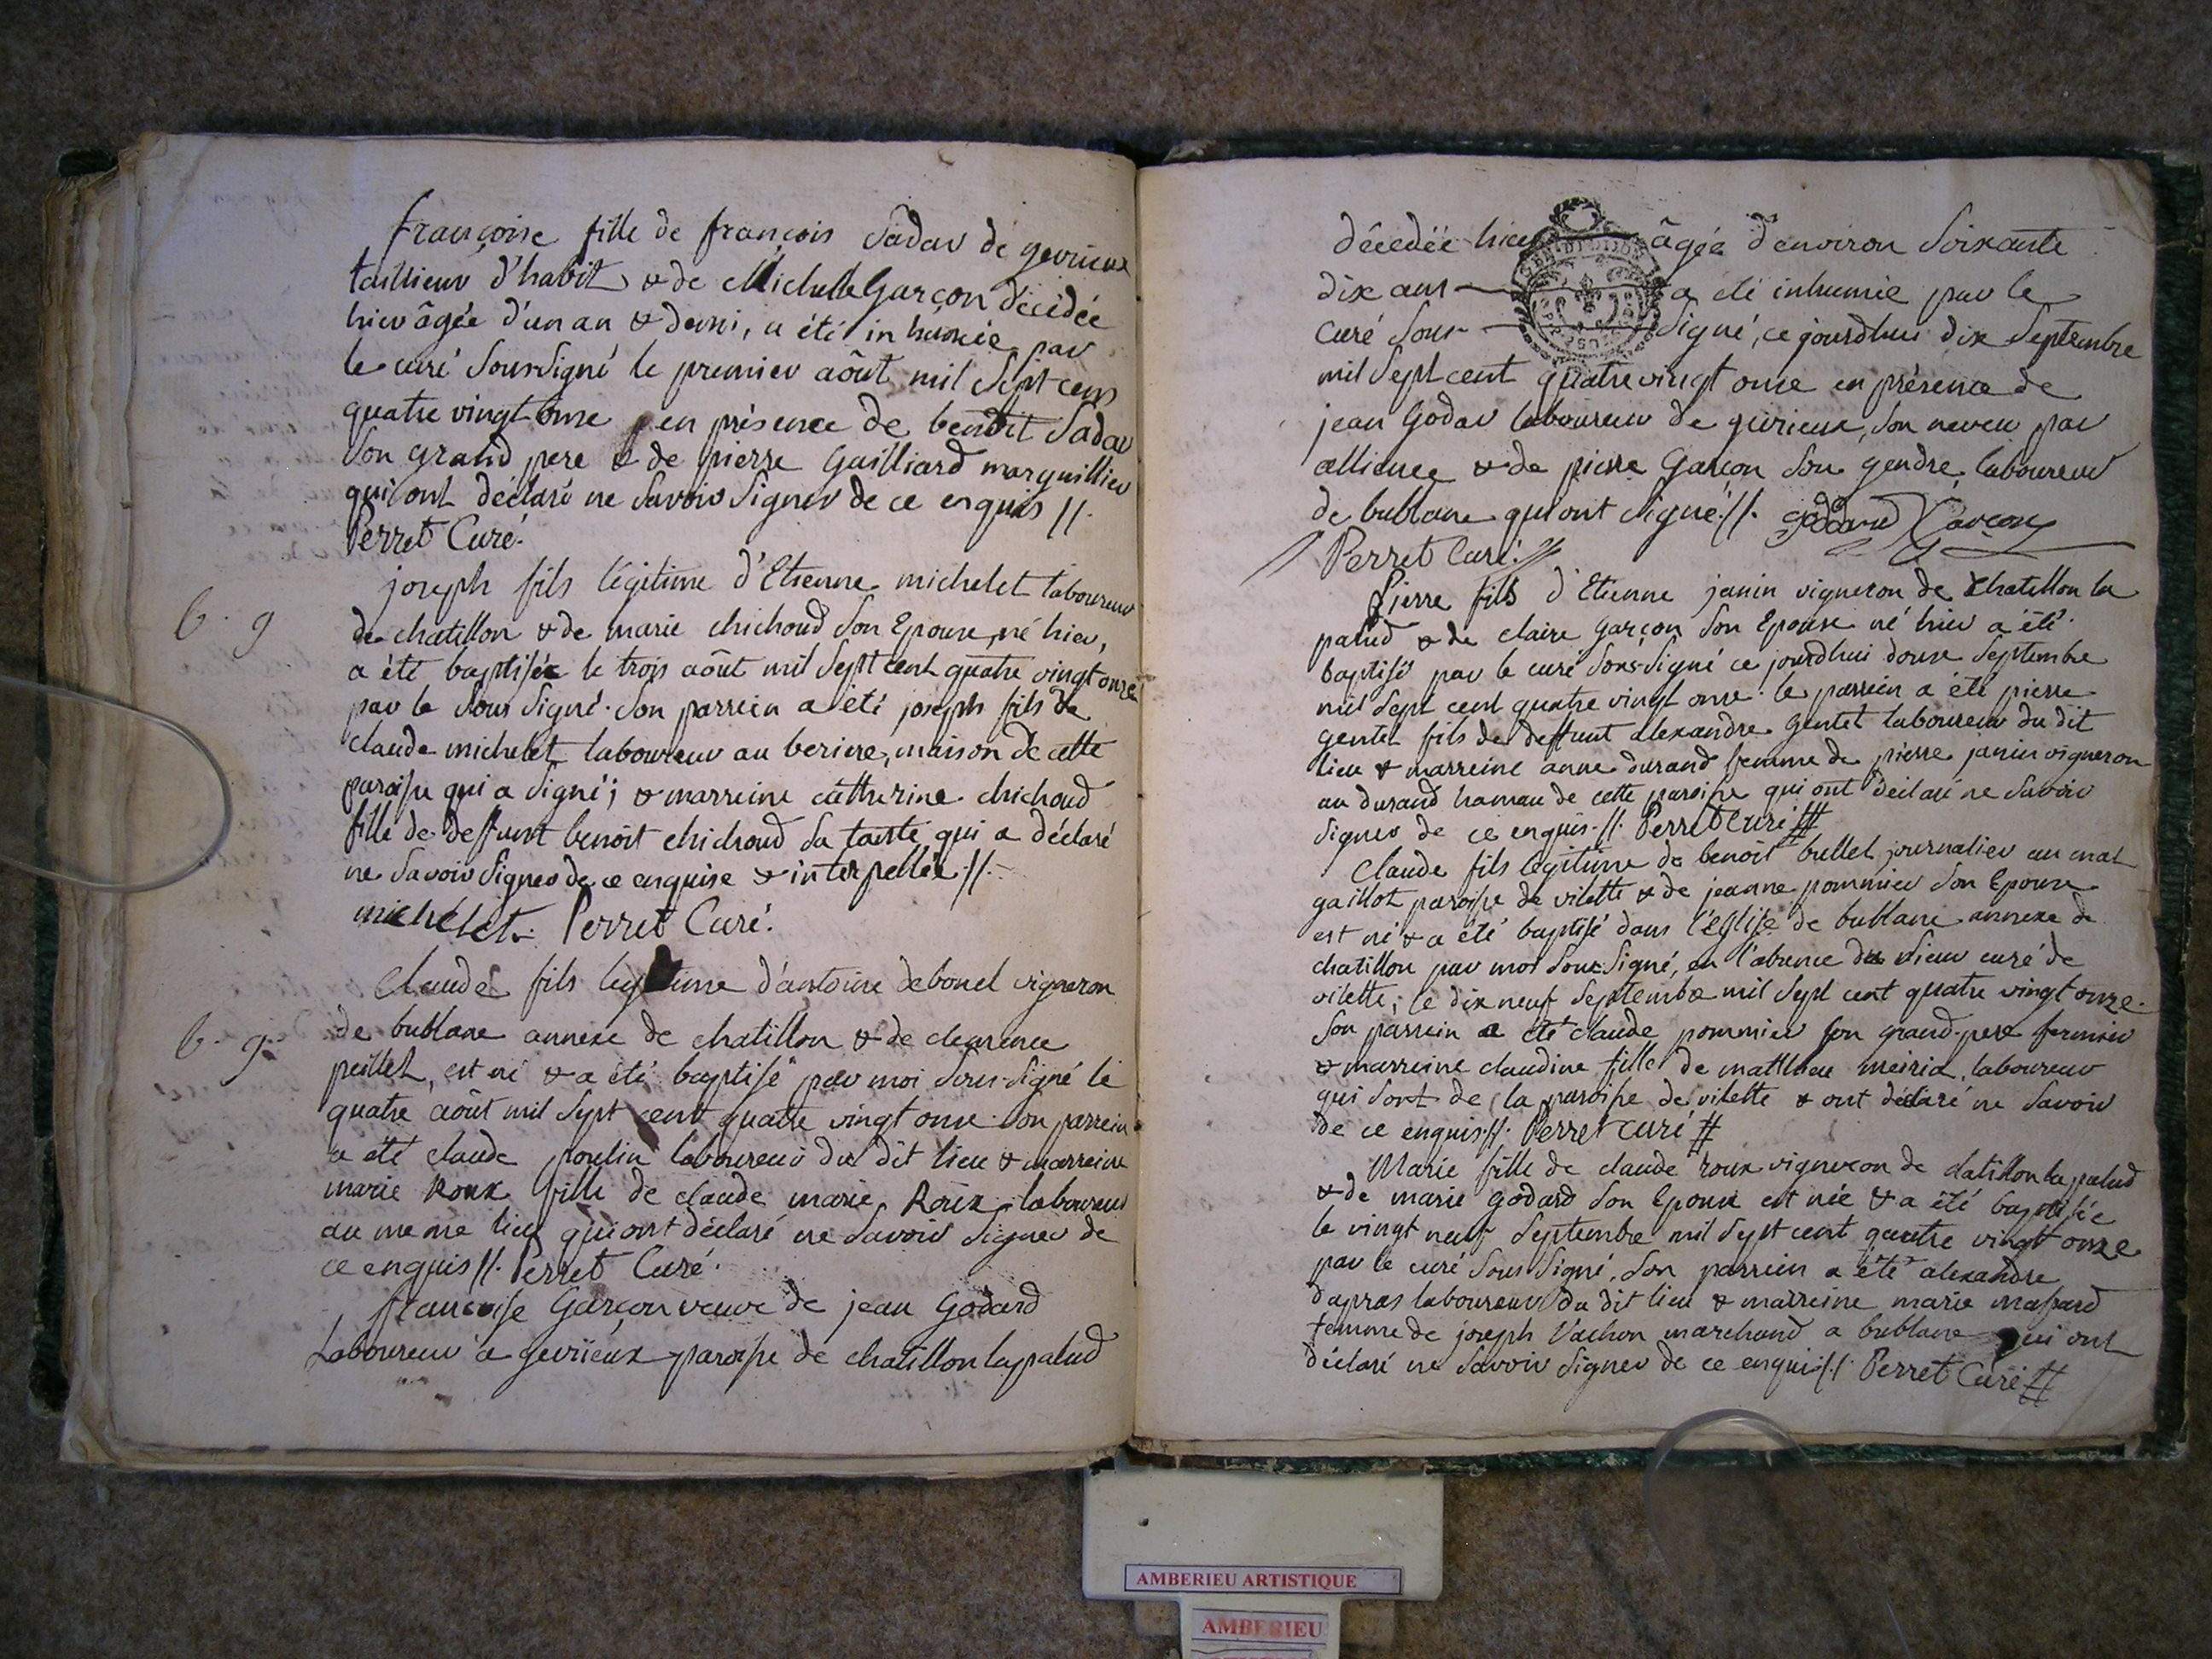 françoise fille de françois Sadar de gevrieux
taillieur d'habit & de Michelle Garçon décédée
hier âgée d'un an & demi, a été inhumée par
le curé Sous-Signé le premier aôut mil Sept cens
quatre vingt onze en présence de benoît Sadar
Son grand pere & de pierre Gailliard marguillier
qui ont déclaré ne Savoir Signer de ce enquis //.
Perret Curé.
joseph fils légitime d'Etienne michelet laboureur
b. g
de chatillon & de marie chichoud Son Epouse, né hier,
a été baptisée le trois aôut mil Sept cent quatre vingt onze
par le Sous Signé. Son parrein a été joseph fils de
claude michelet laboureur au beriere, maison de cette
paroisse qui a Signé; & marreine catherine chichoud
fille de deffunt benoit chichoud Sa tante qui a déclaré
ne Savoir Signer de ce enquise & interpellée //.
michelet. Perret Curé.
Claude fils legitime d'antoine debonel vigneron
b. g.
de bublane annexe de chatillon & de clemence
peillet, est né & a été baptisé par moi Sous-Signé le
quatre aôut mil Sept cent quatre vingt onze. Son parrein
a été claude poulin laboureur du dit lieu & marreine
marie Roux fille de claude marie Roux laboureur
au meme lieu qui ont déclaré ne Savoir Signer de
ce enquis //. Perret Curé.
francoise Garçon veuve de jean Godard
Laboureur a gevrieux paroisse de chatillon la palud
décedée hier âgée d'environ Soixante
dix ans a été inhumée par le
Curé Sous- Signé, ce jourdhui dix Septembre
mil Sept cent quatre vingt onze en présence de
jean Godar laboureur de givrieux, Son neveu par
alliance & de pierre Garçon Son gendre, laboureur
de bublane qui ont Signé //. godard Garçon
Perret Curé.
Pierre fils d'Etienne janin vigneron de Chatillon la
palud & de claire Garçon Son Epouse né hier a été
baptisé par le curé Sous-Signé ce jourdhui douze Septembre
mil Sept cent quatre vingt onze. le parrein a été pierre
gentet fils de deffunt alexandre gentet laboureur du dit
lieu & marreine anne durand femme de pierre janin vigneron
au durand hamau de cette paroisse qui ont déclaré ne Savoir
Signer de ce enquis //. Perret Curé
Claude fils légitime de benoît bullet journalier au mat
gaillot paroisse de vilette & de jeanne pommier Son Epouse
est né & a été baptisé dans l'Eglise de bublane annexe de
chatillon par moi Sous Signé, en l'absence du Sieur curé de
vilette; le dix neuf Septembre mil Sept cent quatre vingt onze.
Son parrein a été claude pommier Son grand-pere fermier
& marreine claudine fille de matthieu meiria laboureur
qui Sont de la paroisse de vilette & ont déclaré ne Savoir
de ce enquis //. Perret curé
Marie fille de claude roux vigneron de chatillon la palud
& de marie godard Son Epouse est née & a été baptisée
le vingt neuf Septembre mil Sept cent quatre vingt onze
par le curé Sous Signé. Son parrein a été alexandre
dapras laboureur du dit lieu & marreine marie massard
femme de joseph Vachon marchand a bublane qui ont
déclaré ne Savoir Signer de ce enquis //. Perret Curé
AMBERIEU ARTISTIQUE
AMBERIEU